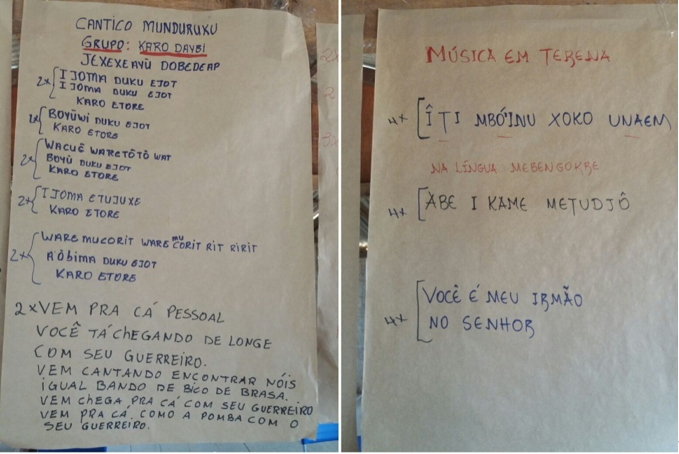 CANTICO MUNDURUKU
GRUPO: KARO DAYBI
JEXEXEAYÙ DOBEDEAP
2x IJOMA DUKU EJOT
IJOMA DUKU EJOT
KARO ETORE
2x BOYŨWI DUKU EJOT
KARO ETORE
2x WACUẼ WARETÕTÕ WAT
BOYŨ DUKU EJOT
KARO ETORE
2x IJOMA ETUJUXE
KARO ETORE
2x WARE MUCORIT WARE MUCORIT RIT RIRIT
A'ÕBIMA DUKU EJOT
KARO ETORE
2x VEM PRA CÁ PESSOAL
VOCÊ TÁ CHEGANDO DE LONGE
COM SEU GUERREIRO.
VEM CANTANDO ENCONTRAR NÓIS
IGUAL BANDO DE BICO DE BRASA.
VEM CHEGA PRA CÁ COM SEU GUERREIRO
VEM PRA CÁ COMO A POMBA COM O
SEU GUERREIRO.
MÚSICA EM TERENA
4x ÎTI MBÓ'INU XOKO UNAEM
NA LÍNGUA MEBENGOKRE
4x ÀBE I KAME METUDJÔ
4x VOCÊ É MEU IRMÃO
NO SENHOR